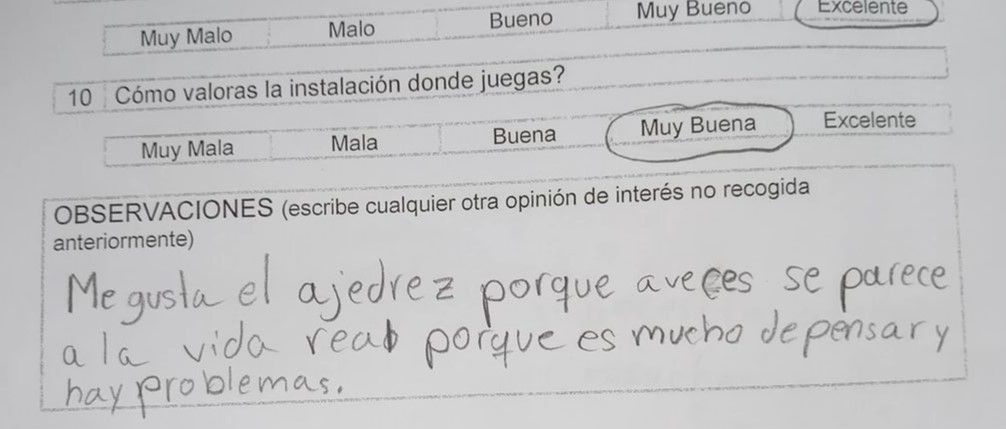 Muy Malo Malo Bueno Muy Bueno Excelente
10 Cómo valoras la instalación donde juegas?
Muy Mala Mala Buena Muy Buena Excelente
OBSERVACIONES (escribe cualquier otra opinión de interés no recogida
anteriormente)
Me gusta el ajedrez porque aveces se parece
a la vida real porque es mucho de pensar y
hay problemas.